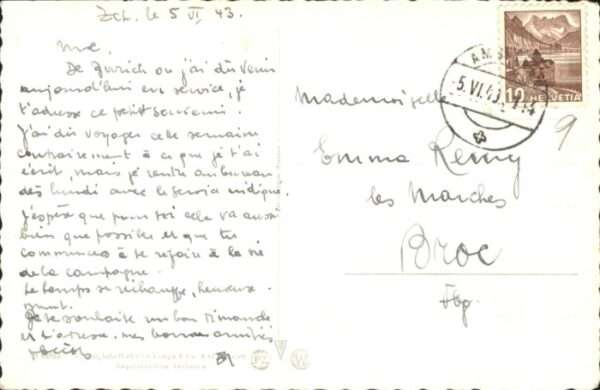 Zch. le 5 VI 43.
De Zurich où j'ai dû venir
aujourd'hui en service, je
t'adresse ce petit souvenir.
J'ai dû voyager cette semaine
contrairement à ce que je t'ai
écrit, mais je rentre au bureau
dès lundi avec le service indiqué.
J'espère que pour toi cela va aussi
bien que possible et que tu
commences à te refaire à la vie
de la campagne.
Le temps se réchauffe, heureuse-
ment.
Je te souhaite un bon dimanche
et t'adresse mes bonnes amitiés
12 HELVETIA
5. VI. 43
Mademoiselle
Emma Remy
les Marches
Broc
Fbg.
9